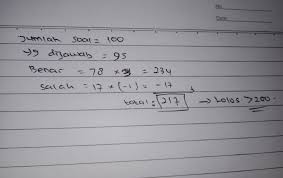 No
Date
Jumlah soal = 100
→ dijawab = 95
Benar = 78 × 3 = 234
Salah = 17 × (-1) = -17
total = 217 → lolos > 200